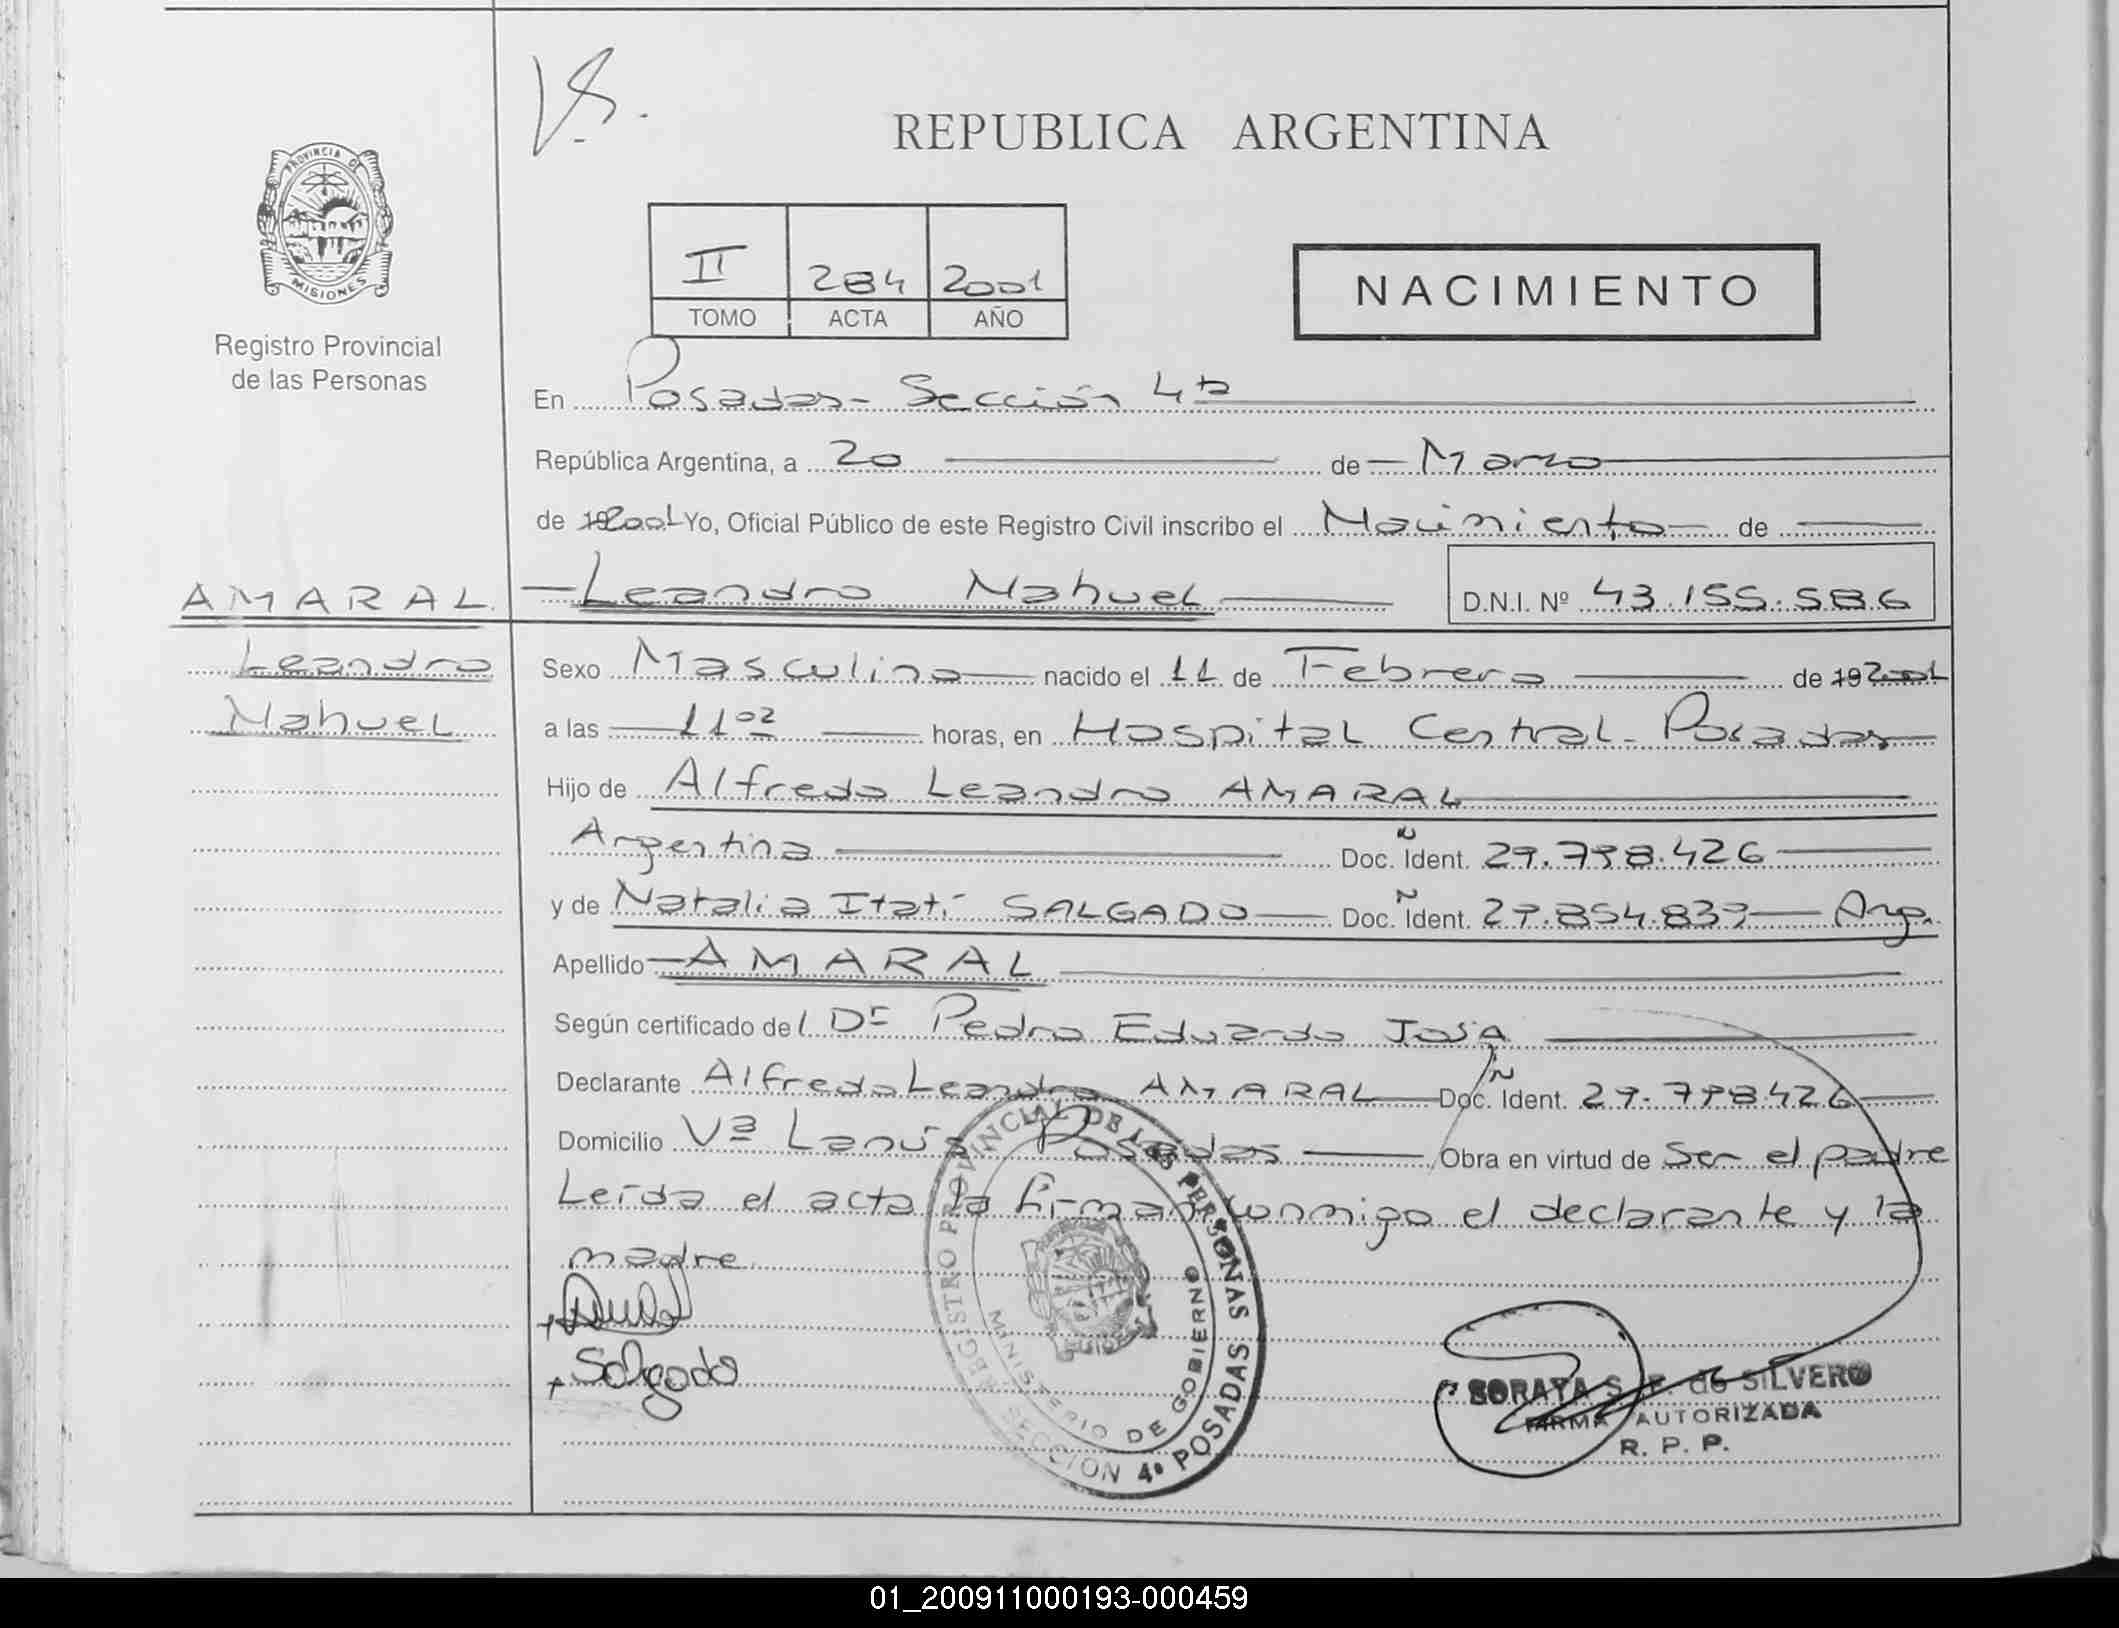 V.S.
REPUBLICA ARGENTINA
PROVINCIA DE MISIONES
Registro Provincial
de las Personas
II 284 2001
TOMO ACTA AÑO
NACIMIENTO
En Posadas - Sección 4ta
República Argentina, a 20 de Marzo
de 19 2001 Yo, Oficial Público de este Registro Civil inscribo el Nacimiento de
AMARAL Leandro Nahuel D.N.I. Nº 43.155.586
Leandro Sexo Masculino nacido el 11 de Febrero de 19 2001
Nahuel a las 11 02 horas, en Hospital Central - Posadas
Hijo de Alfredo Leandro AMARAL
Argentina Doc. Ñ Ident. 29.798.426
y de Natalia Itatí SALGADO Doc. Ñ Ident. 29.854.839 Arg.
Apellido AMARAL
Según certificado del Dr Pedro Eduardo
Declarante Alfredo Leandro AMARAL Doc. Ñ Ident. 29.798.426
Domicilio Vª Lanús Posadas Obra en virtud de ser el padre
Leída el acta la firman conmigo el declarante y la
madre
Salgado
REGISTRO PROVINCIAL DE LAS PERSONAS
MINISTERIO DE GOBIERNO
SECCION 4ª POSADAS
SORAYA S. F. de SILVERO
FIRMA AUTORIZADA
R. P. P.
01_200911000193-000459